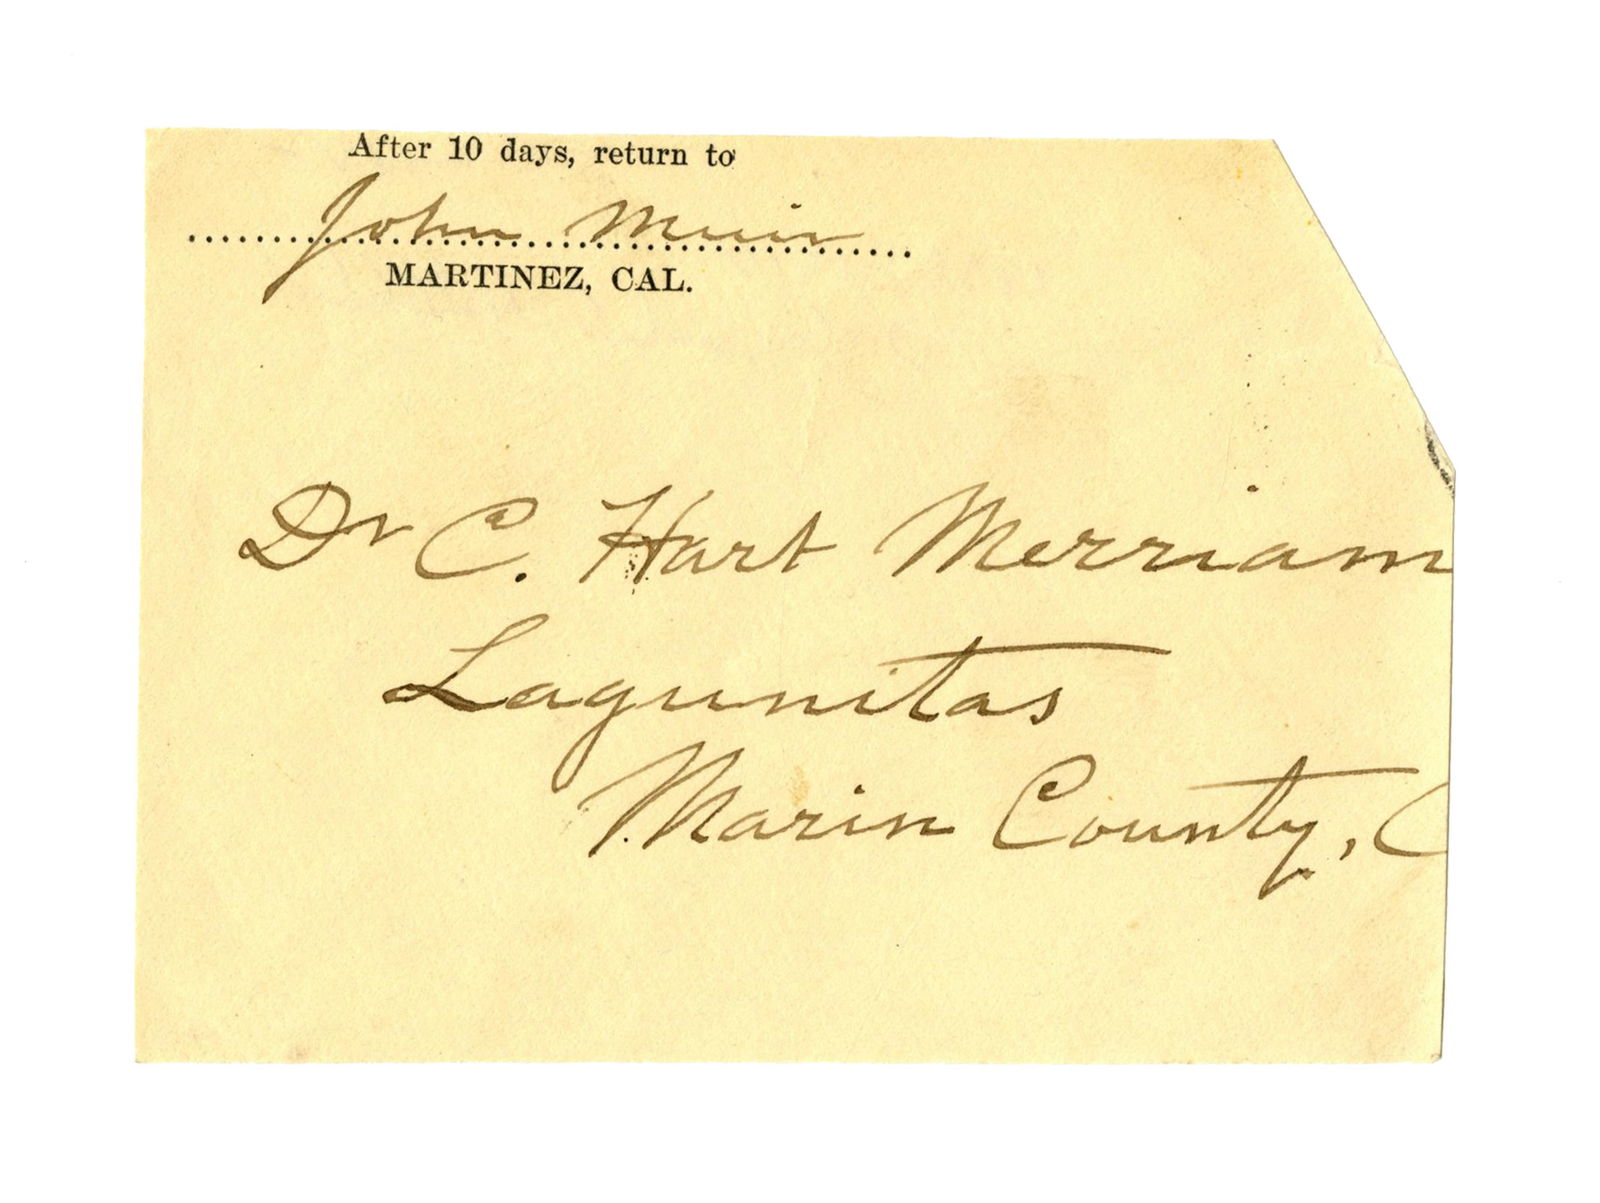 After 10 days, return to
John Muir
MARTINEZ, CAL.
Dr C. Hart Merriam
Lagunitas
Marin County, C